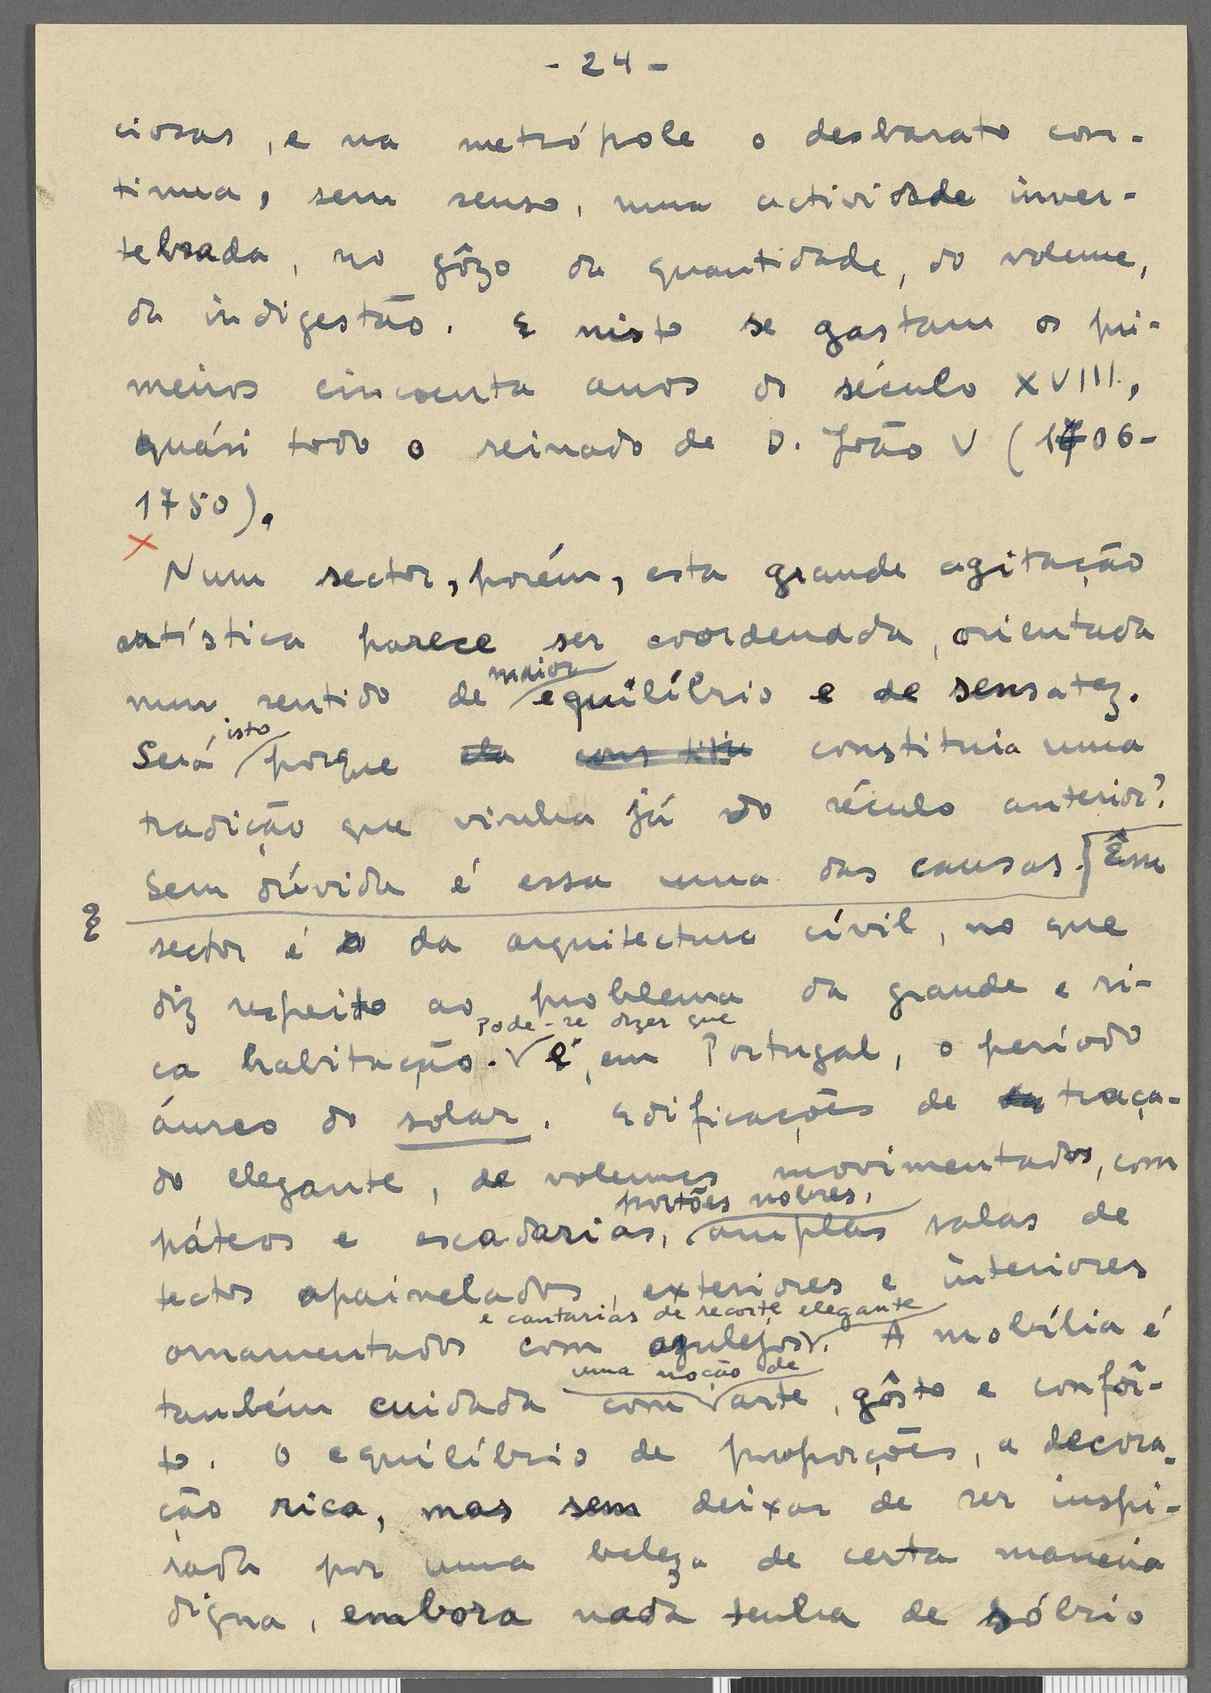 - 24 -
ciosas, e na metrópole o desbarato con-
tinua, sem senso, numa actividade inver-
tebrada, no gôzo da quantidade, do volume,
da indigestão. E nisto se gastam os pri-
meiros cincoenta anos do século XVIII,
quási todo o reinado de D. João V (1706-
1750).
x
Num sector, porém, esta grande agitação
artística parece ser coordenada, orientada
maior
num sentido de equilíbrio e de sensatez.
isto
Será porque ela constituia uma
tradição que vinha já do século anterior?
Sem dúvida é essa uma das causas. Êsse
sector é o da arquitectura cívil, no que
diz respeito ao problema da grande e ri-
Pode-se dizer que
ca habitação. É, em Portugal, o período
áureo do solar. Edificações de traça-
do elegante, de volumes movimentados, com
portões nobres,
páteos e escadarias, amplas salas de
tectos apainelados, exteriores e interiores
e cantarias de recorte elegante
ornamentados com azulejos. A mobília é
uma noção de
também cuidada com arte, gôsto e confôr-
to. O equilíbrio de proporções, a decora-
ção rica, mas sem deixar de ser inspi-
rada por uma beleza de certa maneira
digna, embora nada tenha de sóbrio